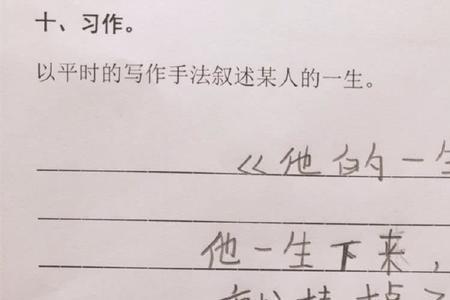 十、习作。
以平时的写作手法叙述某人的一生。
《他的一生
他一生下来，
就挂掉了